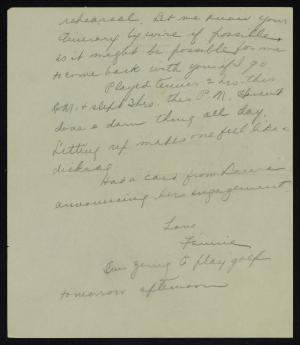 rehearsal. Let me know your
itinerary by wire if possible
as it might be possible for me
to come back with you if I go
Played tennis 2 hrs. this
A.M. & slept 3 hrs. this P.M. Haven't
done a darn thing all day.
Letting up makes one feel like a
Had a card from
announcing her engagement
Love
Fannie
I'm going to play golf
tomorrow afternoon